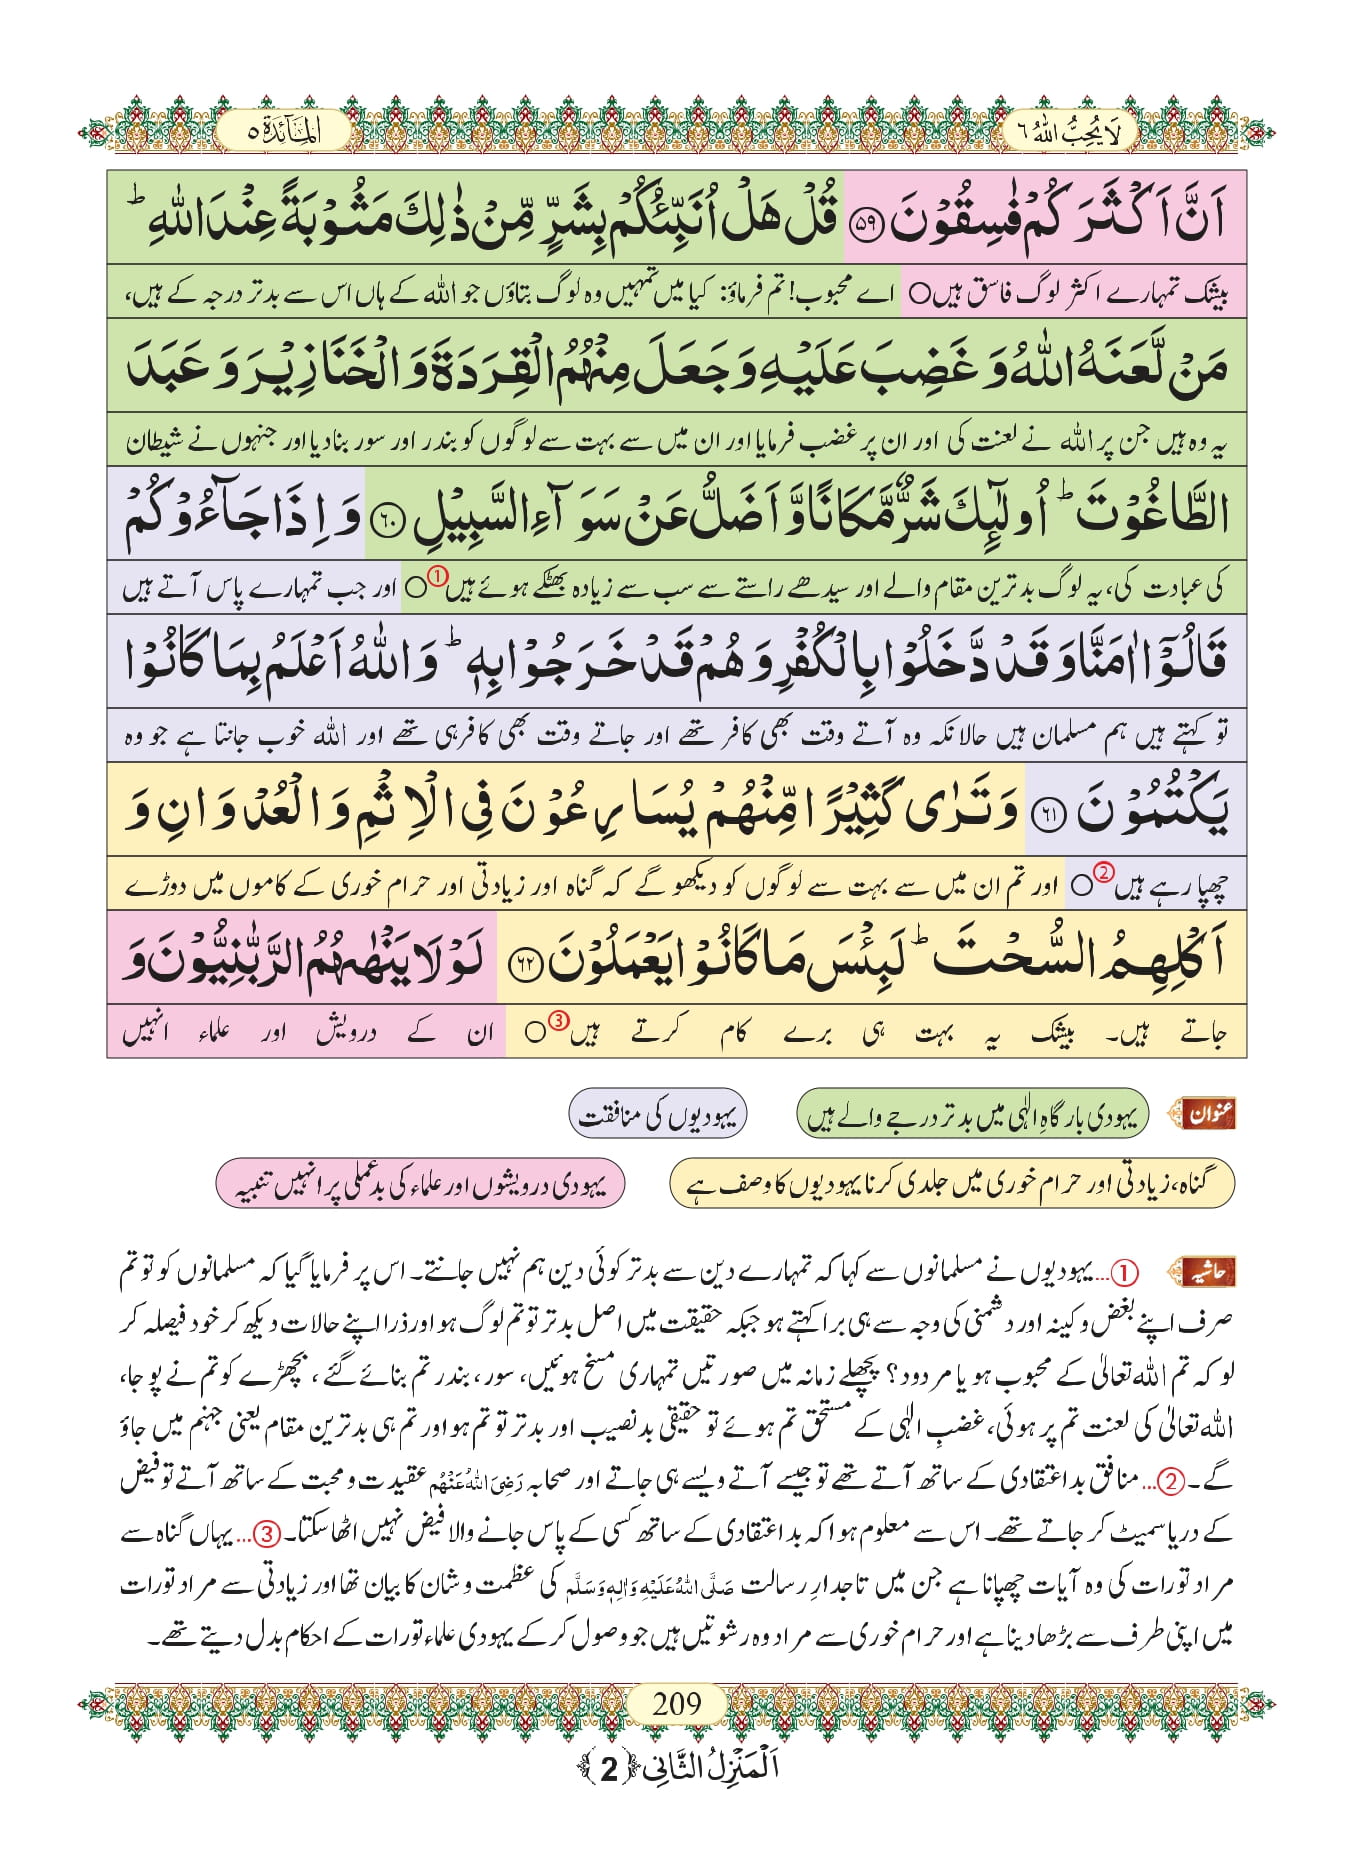 لَا يُحِبُّ اللّٰهُ ٦
الْمَآئِدَة ٥
اَنَّ اَكْثَرَكُمْ فٰسِقُوْنَ ﴿۵۹﴾ قُلْ هَلْ اُنَبِّئُكُمْ بِشَرٍّ مِّنْ ذٰلِكَ مَثُوْبَةً عِنْدَ اللّٰهِ ؕ
بیشک تمہارے اکثر لوگ فاسق ہیں○ اے محبوب! تم فرماؤ: کیا میں تمہیں وہ لوگ بتاؤں جو اللہ کے ہاں اس سے بدتر درجہ کے ہیں،
مَنْ لَّعَنَهُ اللّٰهُ وَ غَضِبَ عَلَیْهِ وَ جَعَلَ مِنْهُمُ الْقِرَدَةَ وَ الْخَنَازِیْرَ وَ عَبَدَ
یہ وہ ہیں جن پر اللہ نے لعنت کی اور ان پر غضب فرمایا اور ان میں سے بہت سے لوگوں کو بندر اور سور بنادیا اور جنہوں نے شیطان
الطَّاغُوْتَ ؕ اُولٰٓئِكَ شَرٌّ مَّكَانًا وَّ اَضَلُّ عَنْ سَوَآءِ السَّبِیْلِ ﴿۶۰﴾ وَ اِذَا جَآءُوْكُمْ
کی عبادت کی، یہ لوگ بدترین مقام والے اور سیدھے راستے سے سب سے زیادہ بھٹکے ہوئے ہیں①○ اور جب تمہارے پاس آتے ہیں
قَالُوْۤا اٰمَنَّا وَ قَدْ دَّخَلُوْا بِالْكُفْرِ وَ هُمْ قَدْ خَرَجُوْا بِهٖ ؕ وَ اللّٰهُ اَعْلَمُ بِمَا كَانُوْا
تو کہتے ہیں ہم مسلمان ہیں حالانکہ وہ آتے وقت بھی کافر تھے اور جاتے وقت بھی کافر ہی تھے اور اللہ خوب جانتا ہے جو وہ
یَكْتُمُوْنَ ﴿۶۱﴾ وَ تَرٰى كَثِیْرًا مِّنْهُمْ یُسَارِعُوْنَ فِی الْاِثْمِ وَ الْعُدْوَانِ وَ
چھپا رہے ہیں②○ اور تم ان میں سے بہت سے لوگوں کو دیکھو گے کہ گناہ اور زیادتی اور حرام خوری کے کاموں میں دوڑے
اَكْلِهِمُ السُّحْتَ ؕ لَبِئْسَ مَا كَانُوْا یَعْمَلُوْنَ ﴿۶۲﴾ لَوْ لَا یَنْهٰىهُمُ الرَّبّٰنِیُّوْنَ وَ
جاتے ہیں۔ بیشک یہ بہت ہی برے کام کرتے ہیں③○ ان کے درویش اور علماء انہیں
عنوان یہودی بارگاہِ الٰہی میں بدتر درجے والے ہیں یہودیوں کی منافقت
گناہ، زیادتی اور حرام خوری میں جلدی کرنا یہودیوں کا وصف ہے یہودی درویشوں اور علماء کی بدعملی پر انہیں تنبیہ
حاشیہ ①...یہودیوں نے مسلمانوں سے کہا کہ تمہارے دین سے بدتر کوئی دین ہم نہیں جانتے۔ اس پر فرمایا گیا کہ مسلمانوں کو تو تم
صرف اپنے بغض و کینہ اور دشمنی کی وجہ سے ہی برا کہتے ہو جبکہ حقیقت میں اصل بدتر تو تم لوگ ہو اور ذرا اپنے حالات دیکھ کر خود فیصلہ کر
لو کہ تم اللہ تعالیٰ کے محبوب ہو یا مردود؟ پچھلے زمانہ میں صورتیں تمہاری مسخ ہوئیں، سور، بندر تم بنائے گئے، بچھڑے کو تم نے پوجا،
اللہ تعالیٰ کی لعنت تم پر ہوئی، غضبِ الٰہی کے مستحق تم ہوئے تو حقیقی بدنصیب اور بدتر تو تم ہو اور تم ہی بدترین مقام یعنی جہنم میں جاؤ
گے۔②...منافق بداعتقادی کے ساتھ آتے تھے تو جیسے آتے ویسے ہی جاتے اور صحابہ رَضِیَ اللّٰہُ عَنْہُم عقیدت و محبت کے ساتھ آتے تو فیض
کے دریا سمیٹ کر جاتے تھے۔ اس سے معلوم ہوا کہ بداعتقادی کے ساتھ کسی کے پاس جانے والا فیض نہیں اٹھا سکتا۔③...یہاں گناہ سے
مراد تورات کی وہ آیات چھپانا ہے جن میں تاجدارِ رسالت صَلَّی اللّٰہُ عَلَیْہِ وَاٰلِہٖ وَسَلَّم کی عظمت و شان کا بیان تھا اور زیادتی سے مراد تورات
میں اپنی طرف سے بڑھا دینا ہے اور حرام خوری سے مراد وہ رشوتیں ہیں جو وصول کر کے یہودی علماء تورات کے احکام بدل دیتے تھے۔
209
اَلْمَنْزِلُ الثَّانِی ﴿2﴾